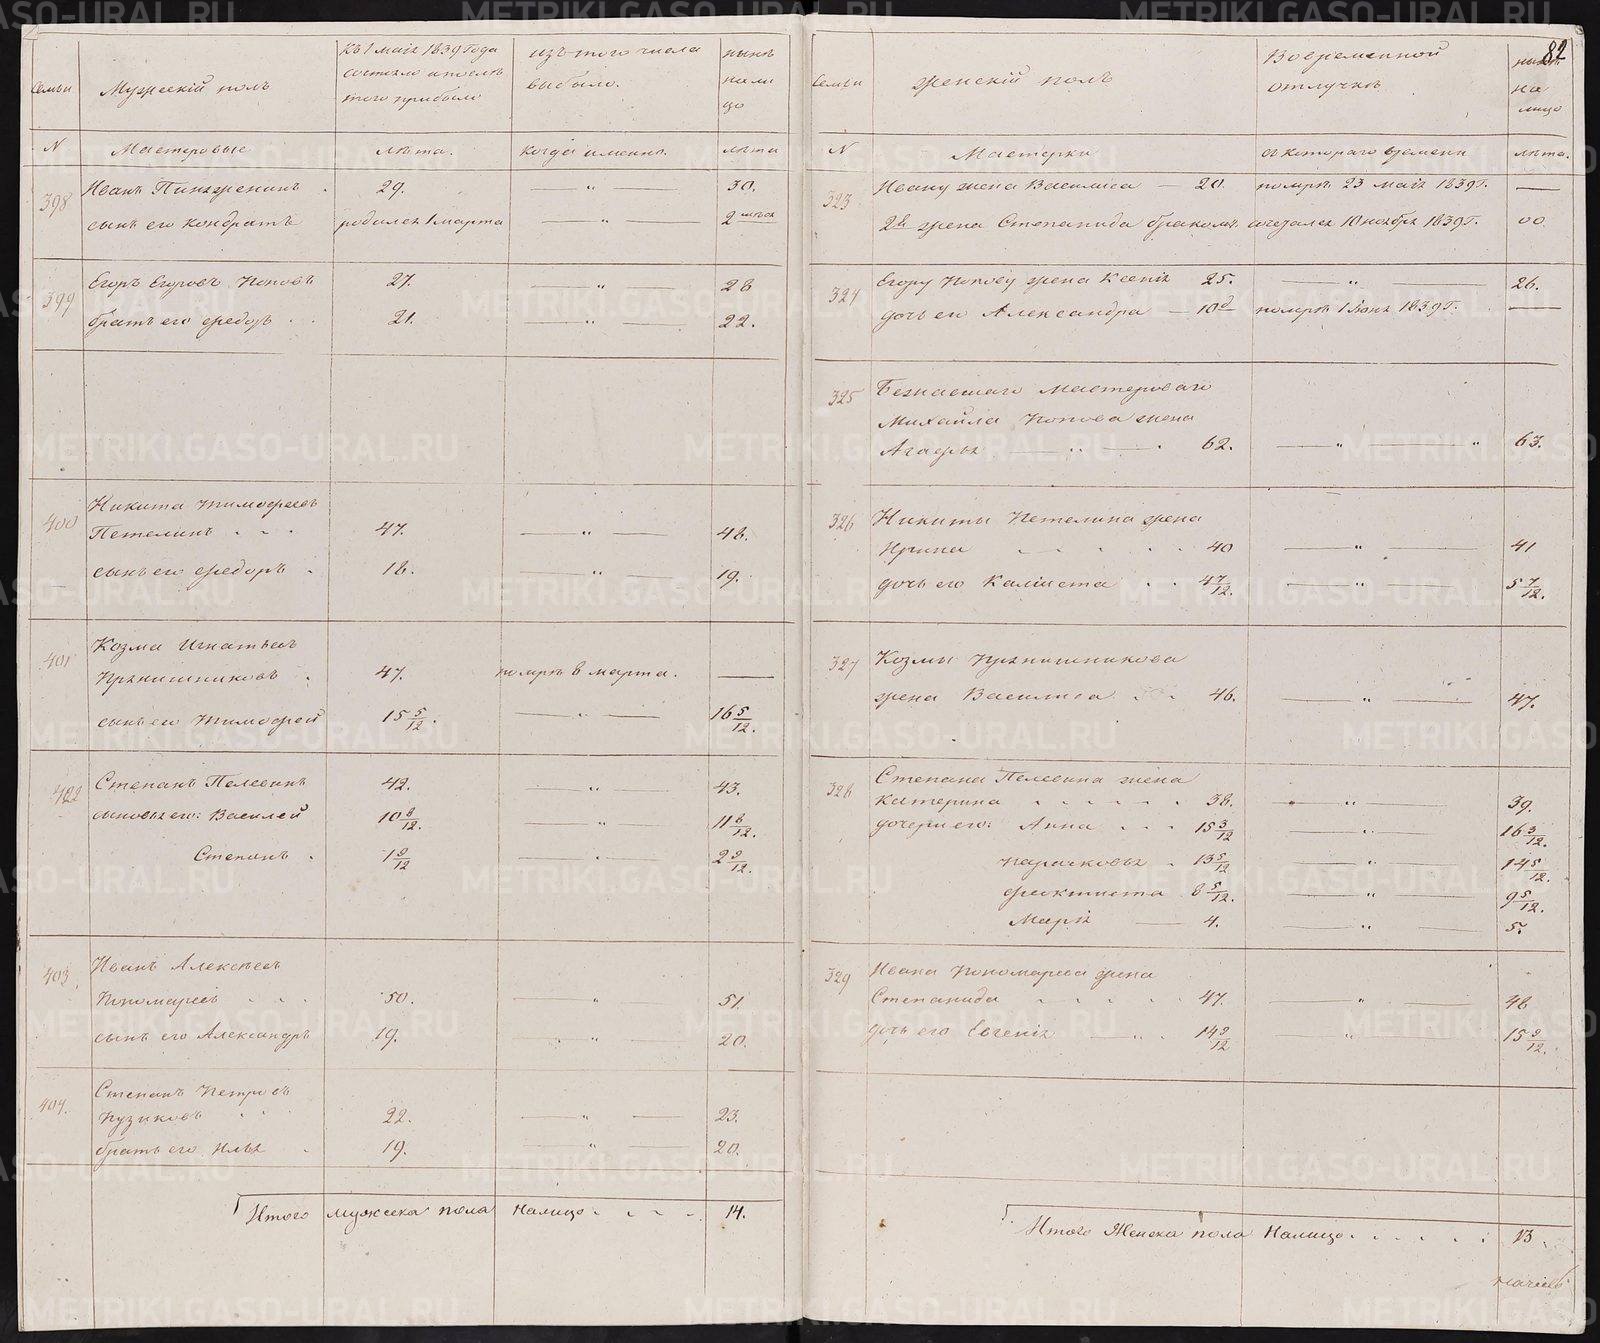 82
семьи
Мужескій полъ
Къ 1 маія 1839 года
состояло и послѣ
того прибыло
изъ того числа
выбыло.
нынѣ
нали
цо
N
Мастеровые
лѣта.
когда имянно.
лѣта
398
Иванъ 29. " 30.
сынъ его Кондратъ родился 1 марта " 2 мѣся
399
Егоръ Егоровъ Поповъ 27. " 28
братъ его Ѳедоръ 21. " 22.
400
Никита Тимофеевъ
Петелинъ 47. " 48.
сынъ его Ѳедоръ 18. " 19.
401
Козма Игнатьевъ
Прянишниковъ 47. померъ 8 марта. —
сынъ его Тимофей 15 5/12. " 16 5/12.
402
Степанъ Пелевинъ 42. " 43.
сыновья его: Василей 10 8/12. " 11 8/12.
Степанъ 1 9/12 " 2 9/12.
403
Иванъ Алексѣевъ
Пономаревъ 50. " 51.
сынъ его Александръ 19. " 20.
404.
Степанъ Петровъ
Пузиковъ 22. " 23.
братъ его Илья 19. " 20.
Итого мужеска пола налицо 14.
семьи
Женскій полъ
Во временной
отлучкѣ
нынѣ
на
лицо
N
Мастерки
съ котораго времени
лѣта.
323
Ивану жена Василиса — 20. помрѣ 23 маія 1839 г. —
2я жена Степанида бракомъ сочеталъ 10 ноября 1839 г. 00
324
Егору Попову жена Ксенія 25. " 26.
дочь его Александра — 10д помрѣ 1 Іюня 1839 г. —
325
Бежавшаго мастероваго
Михайла Попова жена
Агафья " 62. " " 63.
326
Никиты Петелина жена
Ирина 40 " 41
дочь его Калиста 4 7/12. " 5 7/12.
327
Козмы Прянишникова
жена Василиса 46. " 47.
328
Степана Пелевина жена
Катерина 38. " 39.
дочери его: Анна 15 3/12 " 16 3/12.
Парасковья 13 5/12 " 14 5/12.
Феоктиста 8 5/12. " 9 5/12.
Марія — 4. " 5.
329
Ивана Пономарева жена
Степанида 47. " 48
дочь его Евгенія 14 9/12 " 15 9/12.
Итого Женска пола Налицо 13.